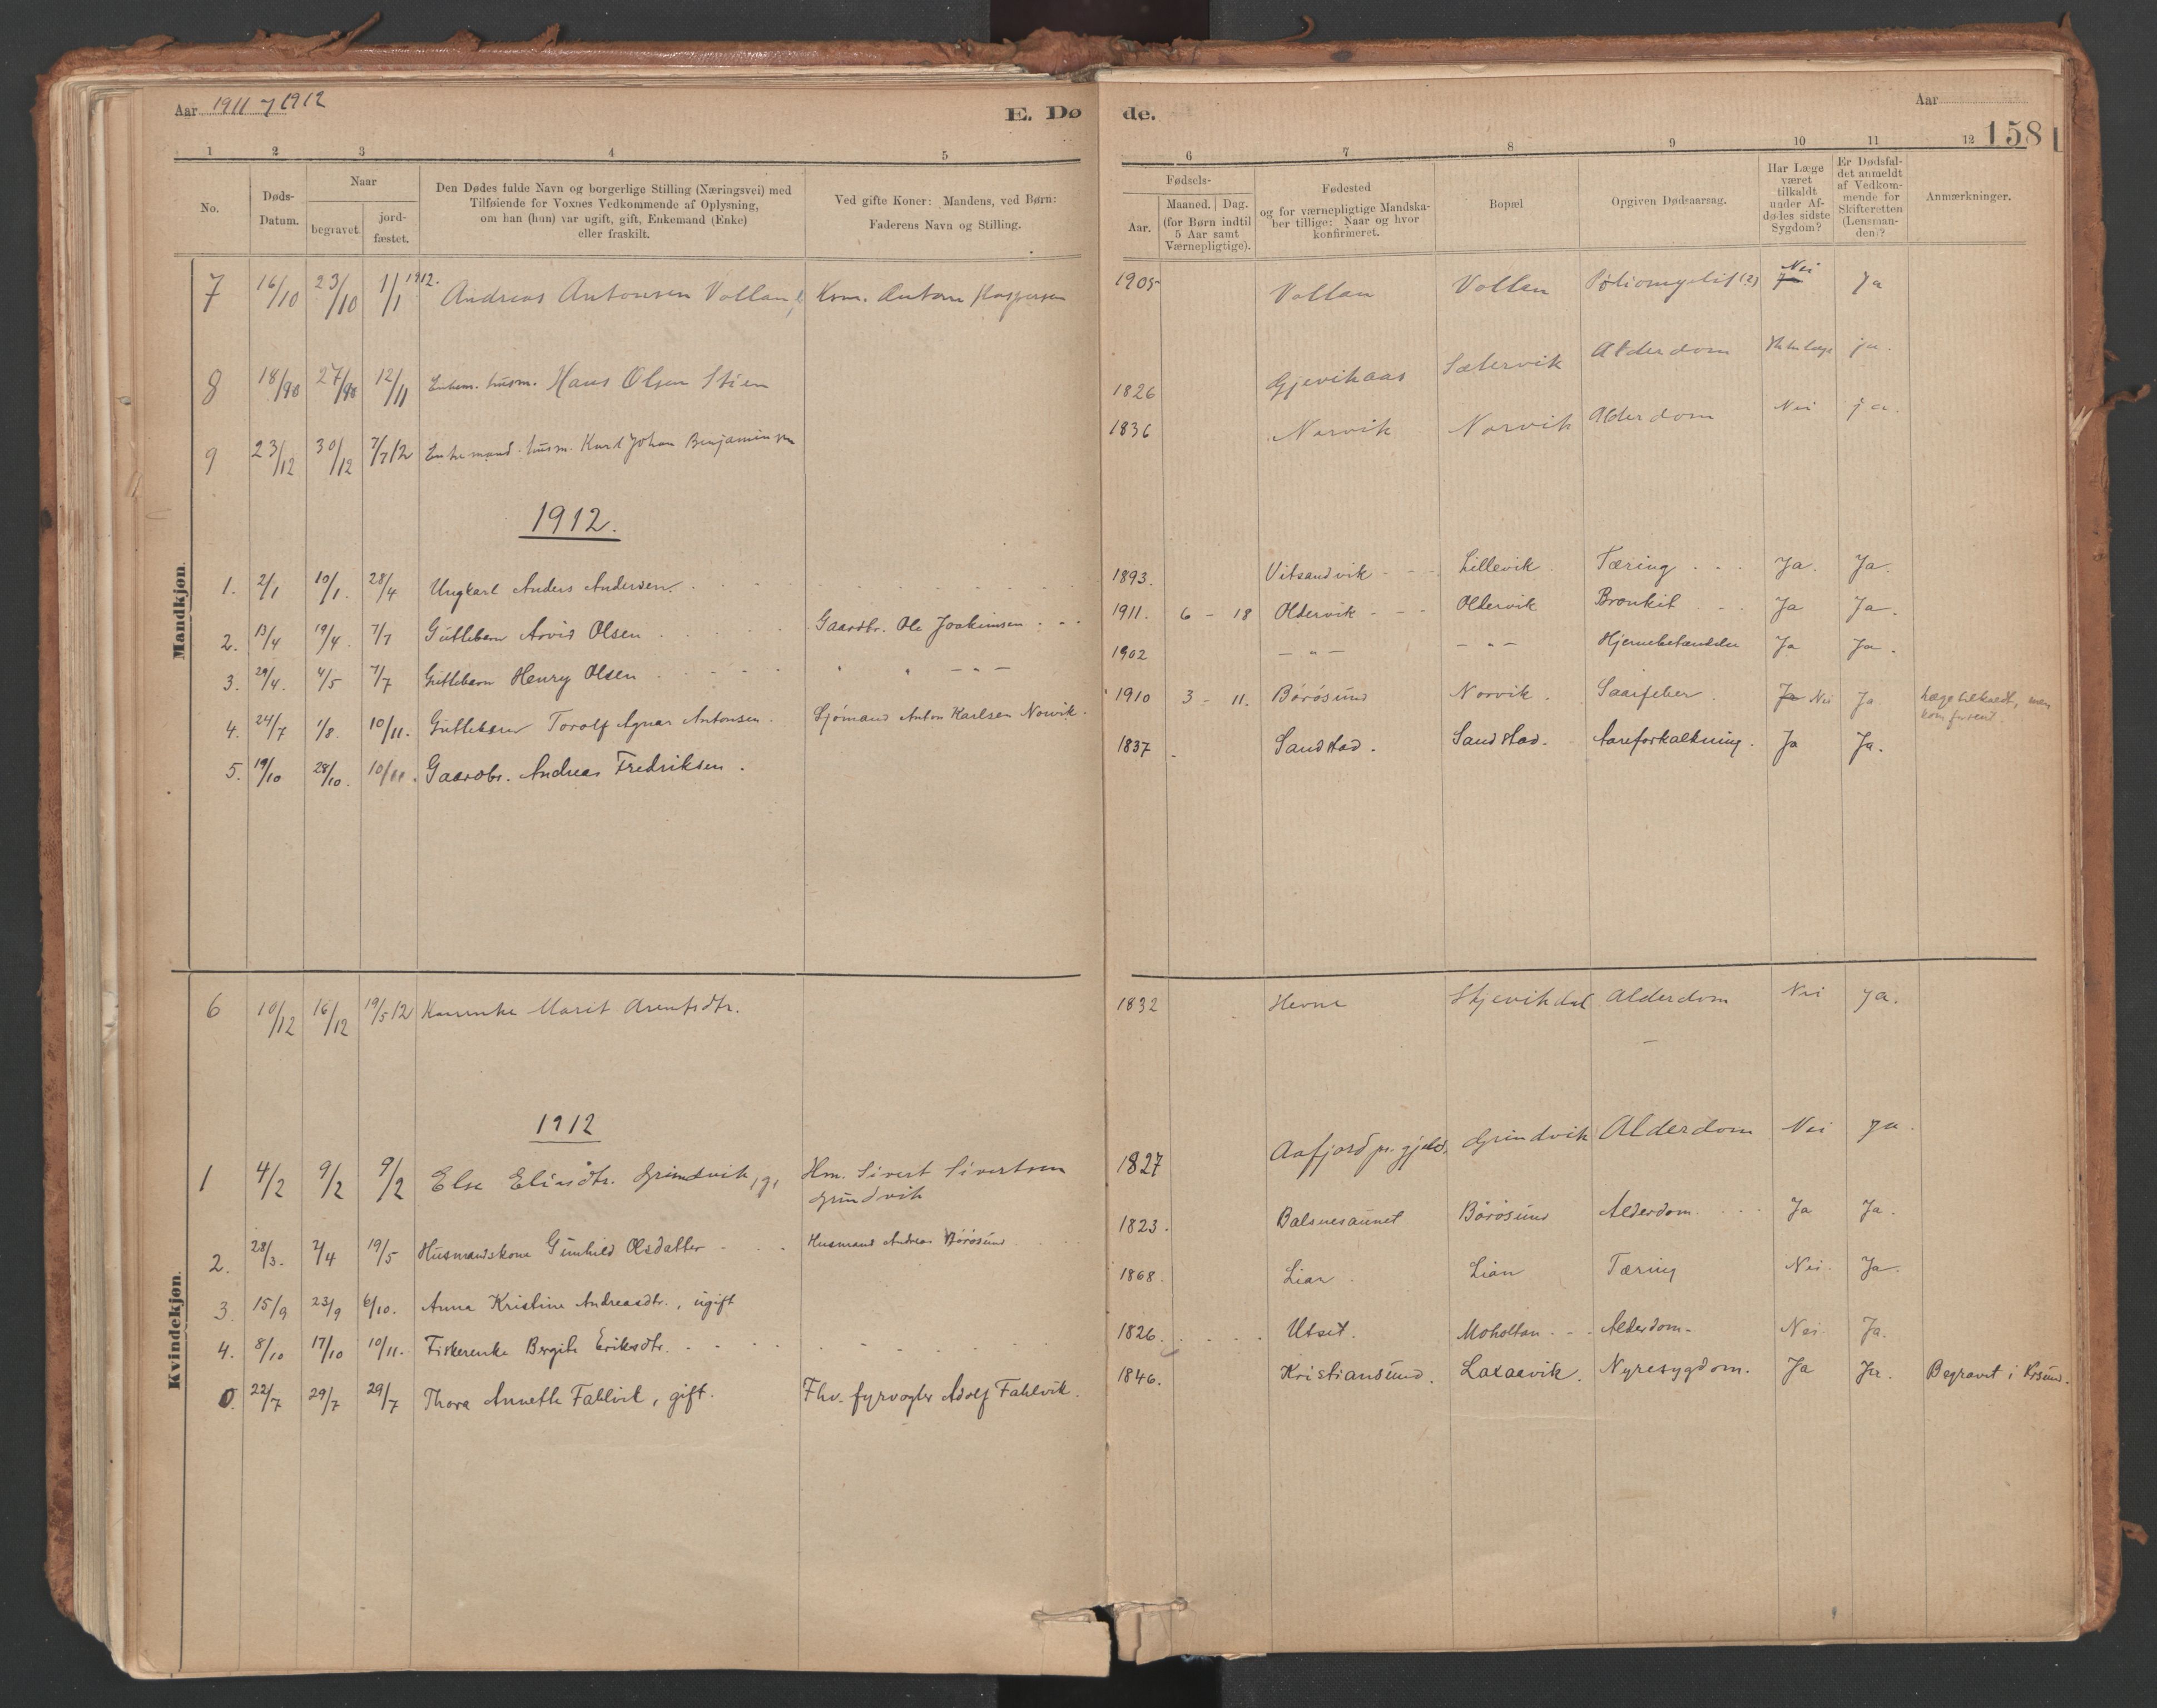 Aar 1911 & 1912
E. Dø de.
Aar
158
1 2 3 4 5 6 7 8 9 10 11 12
No.
Døds-Datum.
Naar
begravet.
jord-fæstet.
Den Dødes fulde Navn og borgerlige Stilling (Næringsvei) med
Tilføiende for Voxnes Vedkommende af Oplysning,
om han (hun) var ugift, gift, Enkemand (Enke)
eller fraskilt.
Ved gifte Koner: Mandens, ved Børn:
Faderens Navn og Stilling.
Fødsels-
Aar.
Maaned. Dag.
(for Børn indtil
5 Aar samt
Værnepligtige).
Fødested
og for værnepligtige Mandska-
ber tillige: Naar og hvor
konfirmeret.
Bopæl
Opgiven Dødsaarsag.
Har Læge
været
tilkaldt
under Af-
dødes sidste
Sygdom?
Er Dødsfal-
det anmeldt
af Vedkom-
mende for
Skifteretten
(Lensman-
den)?
Anmærkninger.
Mandkjøn.
7 16/10 23/10 1/1 1912. Andreas Antonsen Vollan, Anton Kaspersen 1905 Vollan Vollan Poliomyelit (?) Nei Ja
8 18/10 27/10 12/11 Enkem. husm. Hans Olsen Stien 1826 Gjevikaas Sætervik Alderdom ja.
9 23/12 30/12 7/7 12 Enkemand. husm. Karl Johan Benjaminsen 1836 Norvik Norvik Alderdom Nei ja.
1912.
1. 2/1 10/1. 28/4 Ungkarl Anders Andersen. 1893. Vitsandvik Lillevik Tæring Ja. Ja.
2. 13/4 19/4. 7/7 Guttebarn Arvid Olsen Gaardbr. Ole Joakimsen 1911. 6 - 18 Oldervik Oldervik Bronkit Ja Ja.
3. 29/4. 4/5 7/7 Guttebarn Henry Olsen " " - " - 1902 - " - - " - Hjernebetændelse Ja Ja.
4. 24/7 1/8. 10/11. Guttebarn Torolf Agnar Antonsen. Sjömand Anton Karlsen Norvik. 1910 3 - 11. Börösund Norvik. Skarlagensfeber Ja Nei Ja Læge tilkaldt, men
kom for sent.
5. 19/10 28/10. 10/11. Gaardbr. Andreas Fredriksen. 1837 Sandstad. Sandstad. Aareforkalkning. Ja Ja.
Kvindekjøn.
6 10/12 16/12 19/5 12 Marit Arentsdtr. 1832 Hevne Skjevikdal Alderdom Nei ja.
1912
1 4/2 9/2 9/2 Else Eliasdtr. Grindvik, g, Hm. Sivert Sivertsen
Grindvik 1827 Aafjord pr.gjeld. Grindvik Alderdom Nei ja.
2. 28/3. 2/4 19/5 Husmandskone Gunhild Olsdatter Husmand Andreas Börösund 1823. Balsnesaunet Börösund Alderdom. Ja Ja.
3. 15/9 23/9 6/10. Anna Kristine Andreasdtr., ugift 1868. Lian Lian Tæring Nei. Ja.
4. 8/10 17/10 10/11. Fiskerenke Bergite Eriksdtr. 1826. Utset. Moholtan Alderdom. Nei Ja.
0. 22/7 29/7 29/7 Thora Annette Fahlvik, gift. Fhv. fyrvogter Adolf Fahlvik. 1846. Kristiansund. Laxaavik. Nyresygdom. Ja Ja. Begravet i Krsund.